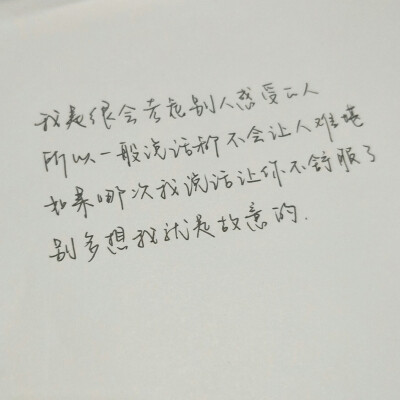 我是很会考虑别人感受的人
所以一般说话都不会让人难堪
如果哪次我说话让你不舒服了
别多想我就是故意的.